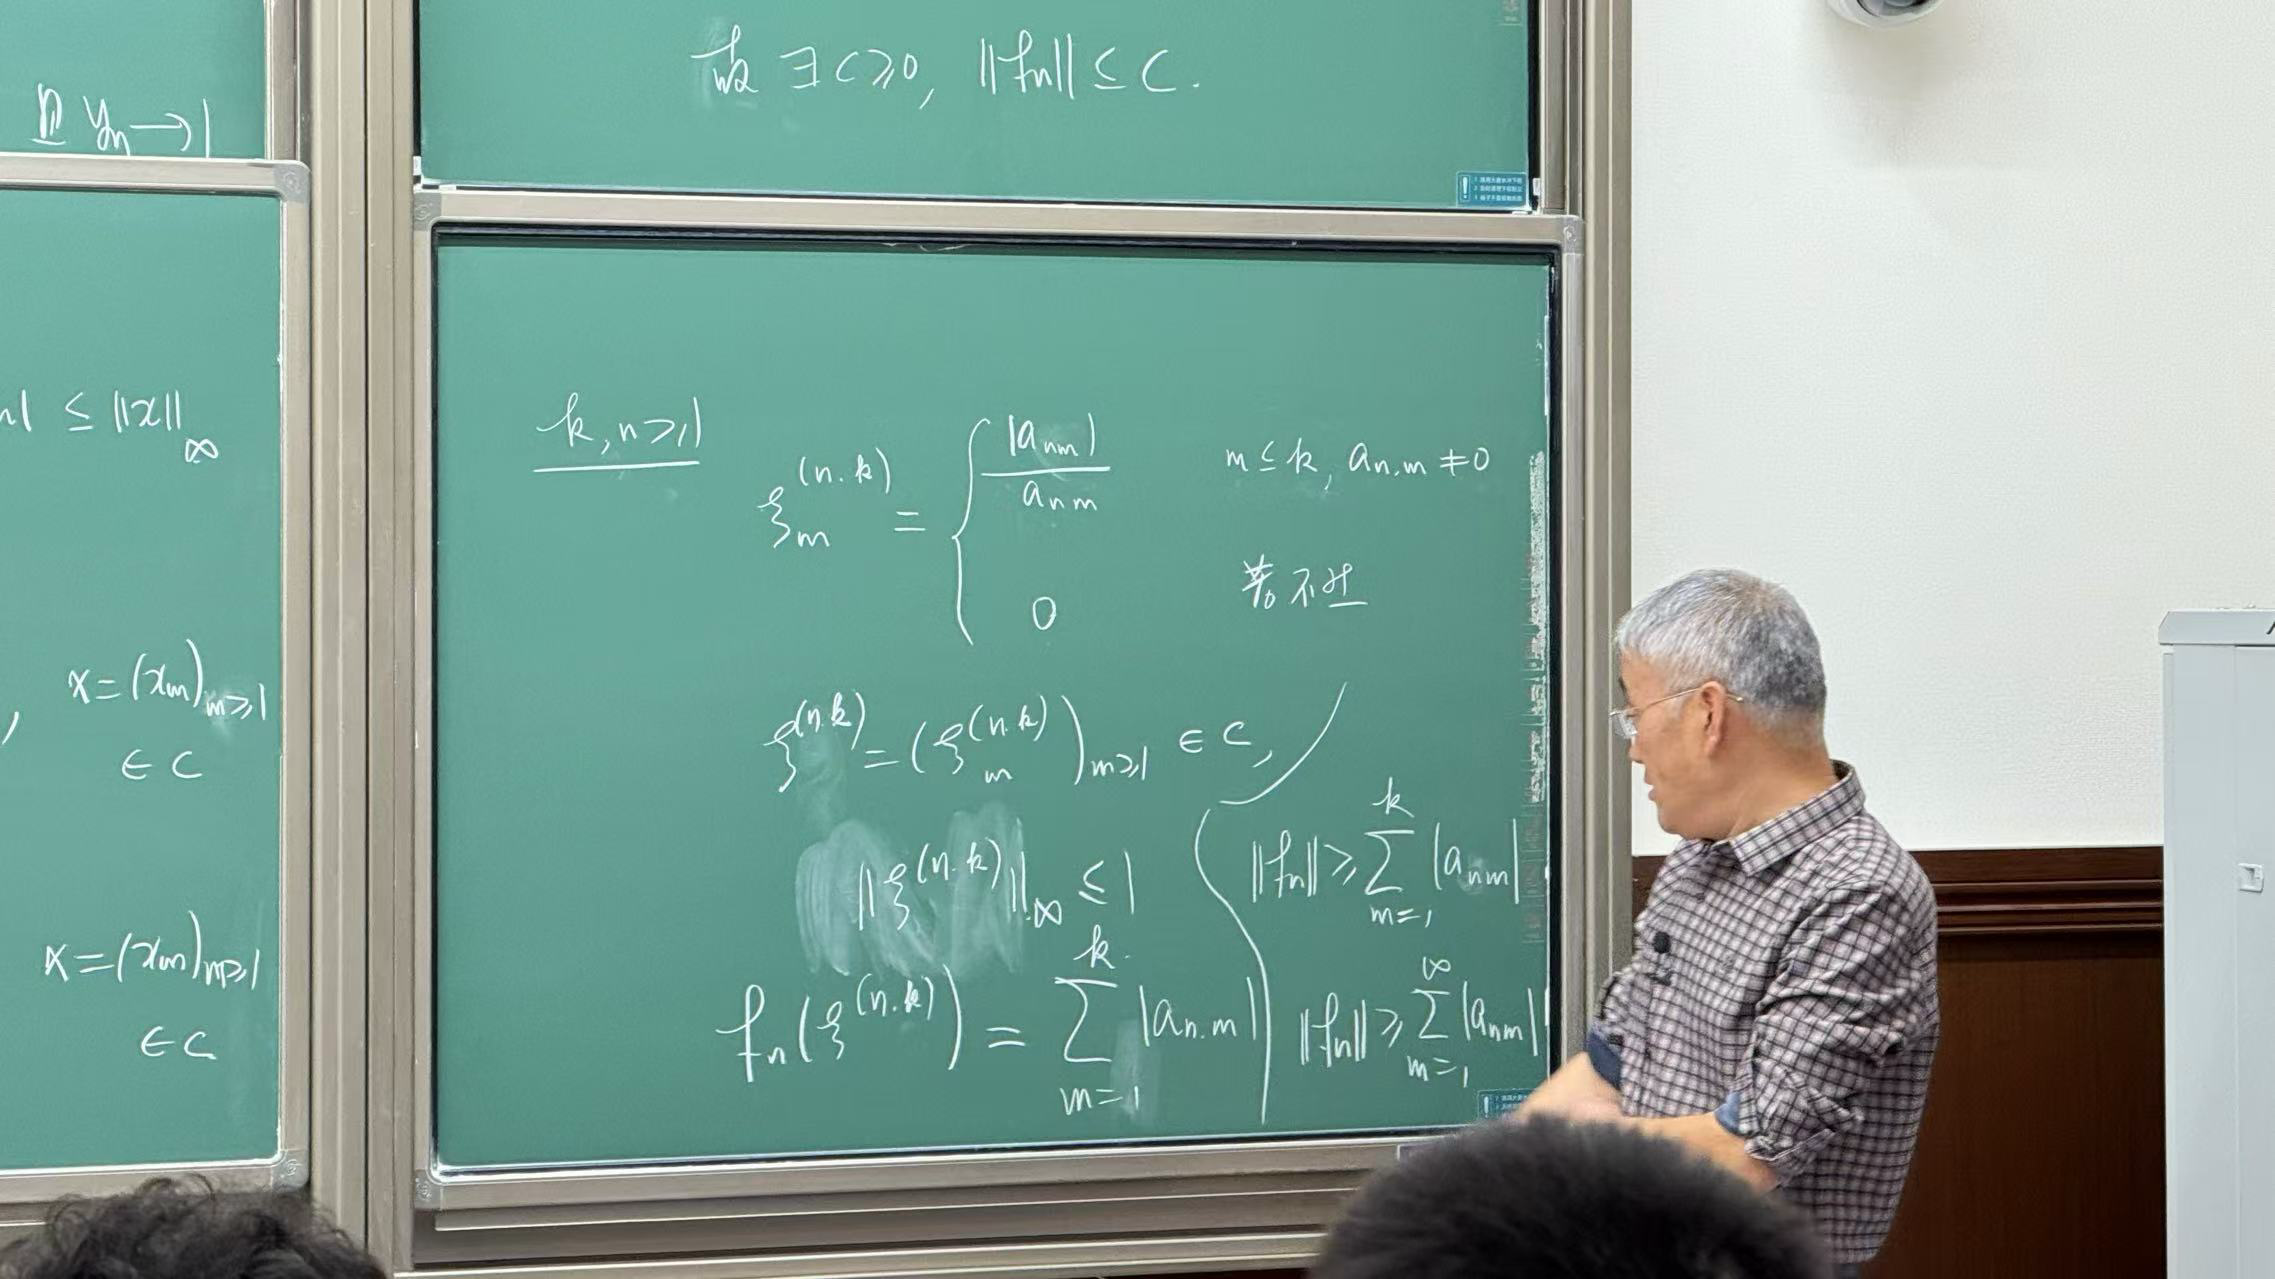 且 yₙ → 1
| ≤ ‖x‖_∞
, x = (xₘ)_{m≥1}
∈ c
x = (xₘ)_{m≥1}
∈ c
故 ∃ C ≥ 0, ‖fₙ‖ ≤ C.
k, n ≥ 1
ξ_m^{(n.k)} = { |a_{nm}| / a_{nm}   m ≤ k, a_{n.m} ≠ 0
0   若不然
ξ^{(n.k)} = (ξ_m^{(n.k)})_{m≥1} ∈ c,
‖ξ^{(n.k)}‖_∞ ≤ 1
fₙ(ξ^{(n.k)}) = ∑_{m=1}^{k} |a_{n.m}|
‖fₙ‖ ≥ ∑_{m=1}^{k} |a_{nm}|
‖fₙ‖ ≥ ∑_{m=1}^{∞} |a_{nm}|